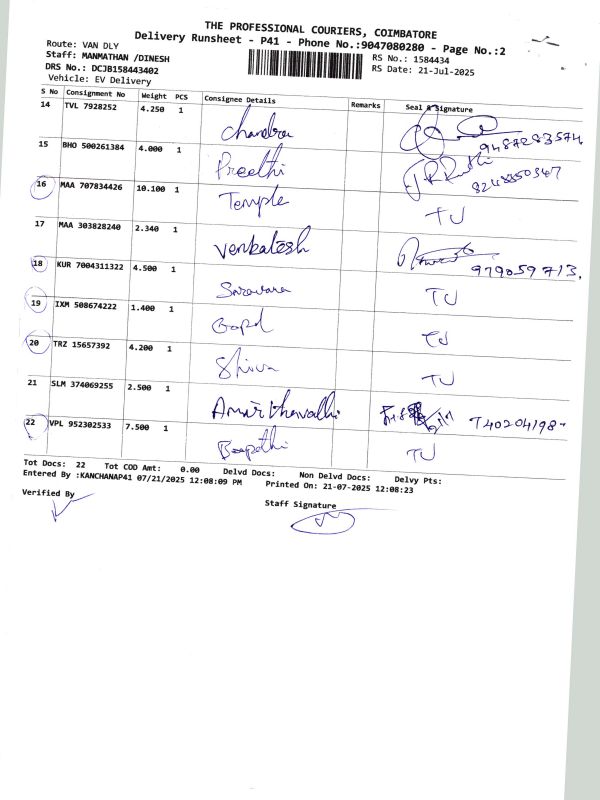 THE PROFESSIONAL COURIERS, COIMBATORE
Delivery Runsheet - P41 - Phone No.:9047080280 - Page No.:2
Route: VAN DLY
Staff: MANMATHAN /DINESH
RS No.: 1584434
DRS No.: DCJB158443402
RS Date: 21-Jul-2025
Vehicle: EV Delivery
S No Consignment No Weight PCS Consignee Details Remarks Seal & Signature
14 TVL 7928252 4.250 1 Chandra 9487283574
15 BHO 500261384 4.000 1 Preethi 8248350347
16 MAA 707834426 10.100 1 Temple TJ
17 MAA 303828240 2.340 1 Venkatesh 979059713.
18 KUR 7004311322 4.500 1 TJ
19 IXM 508674222 1.400 1 TJ
20 TRZ 15657392 4.200 1 Shiva TJ
21 SLM 374069255 2.500 1
22 VPL 952302533 7.500 1 TJ
Tot Docs: 22 Tot COD Amt: 0.00 Delvd Docs: Non Delvd Docs: Delvy Pts:
Entered By :KANCHANAP41 07/21/2025 12:08:09 PM Printed On: 21-07-2025 12:08:23
Verified By
Staff Signature